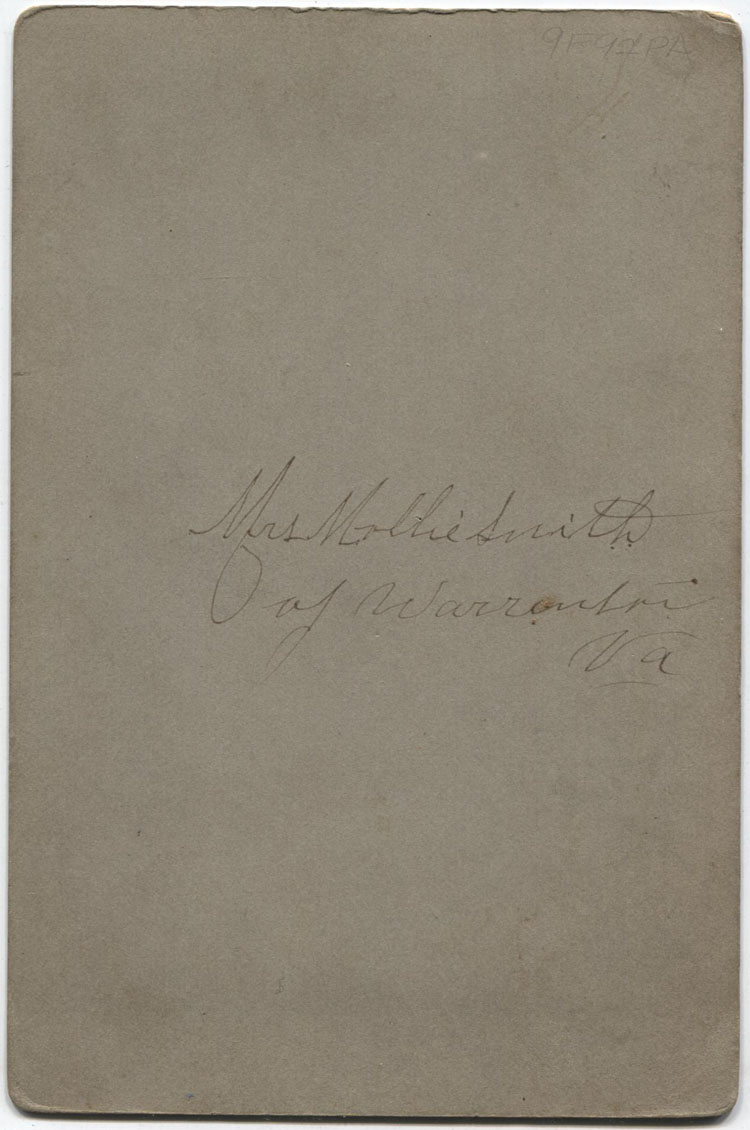 Mrs Mollie Smith
of Warrenton
Va